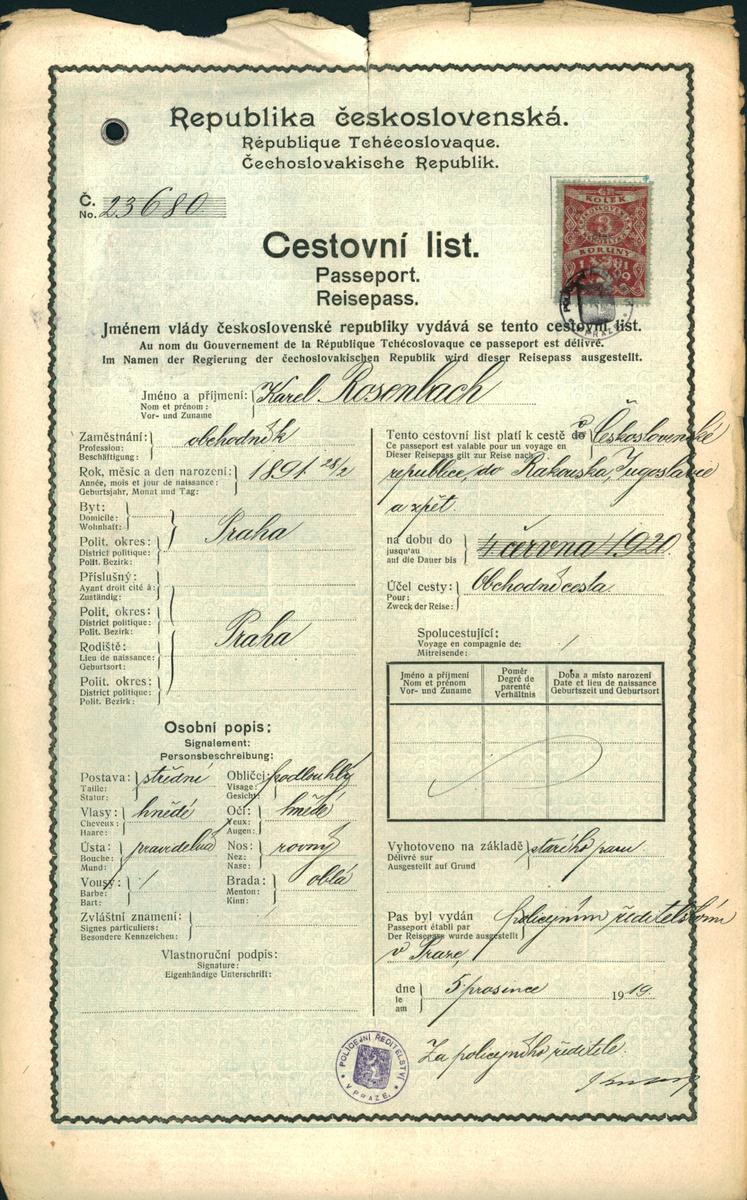 Republika československá.
République Tchécoslovaque.
Čechoslovakische Republik.
Č.
No. 23680
KOLEK
3
KORUNY
1919
Cestovní list.
Passeport.
Reisepass.
Jménem vlády československé republiky vydává se tento cestovní list.
Au nom du Gouvernement de la République Tchécoslovaque ce passeport est délivré.
Im Namen der Regierung der čechoslovakischen Republik wird dieser Reisepass ausgestellt.
Jméno a příjmení: Karel Rosenbach
Nom et prénom:
Vor- und Zuname
Zaměstnání: obchodník
Profession:
Beschäftigung:
Rok, měsíc a den narození: 1891 28/2
Année, mois et jour de naissance:
Geburtsjahr, Monat und Tag:
Byt:
Domicile:
Wohnhaft:
Praha
Polit. okres:
District politique:
Polit. Bezirk:
Příslušný:
Ayant droit cité à:
Zuständig:
Polit. okres:
District politique:
Polit. Bezirk:
Praha
Rodiště:
Lieu de naissance:
Geburtsort:
Polit. okres:
District politique:
Polit. Bezirk:
Osobní popis:
Signalement:
Personsbeschreibung:
Postava: střední Obličej: podlouhlý
Taille: Visage:
Statur: Gesicht:
Vlasy: hnědé Oči: hnědé
Cheveux: Yeux:
Haare: Augen:
Ústa: pravidelná Nos: rovný
Bouche: Nez:
Mund: Nase:
Vousy: / Brada: oblá
Barbe: Menton:
Bart: Kinn:
Zvláštní znamení: /
Signes particuliers:
Besondere Kennzeichen:
Vlastnoruční podpis:
Signature:
Eigenhändige Unterschrift:
Tento cestovní list platí k cestě do v Československé
Ce passeport est valable pour un voyage en
Dieser Reisepass gilt zur Reise nach
republice, do Rakouska, Jugoslavie
a zpět.
na dobu do 4 června 1920
jusqu'au
auf die Dauer bis
Účel cesty: Obchodní cesta.
Pour:
Zweck der Reise:
Spolucestující: /
Voyage en compagnie de:
Mitreisende:
Jméno a příjmení Poměr Doba a místo narození
Nom et prénom Degré de parenté Date et lieu de naissance
Vor- und Zuname Verhältnis Geburtszeit und Geburtsort
Vyhotoveno na základě starého pasu.
Délivré sur
Ausgestellt auf Grund
Pas byl vydán policejním ředitelstvím
Passeport établi par
Der Reisepass wurde ausgestellt
v Praze,
dne 5. prosince 1919.
le
am
Za policejního ředitele.
POLICEJNÍ ŘEDITELSTVÍ
V PRAZE.